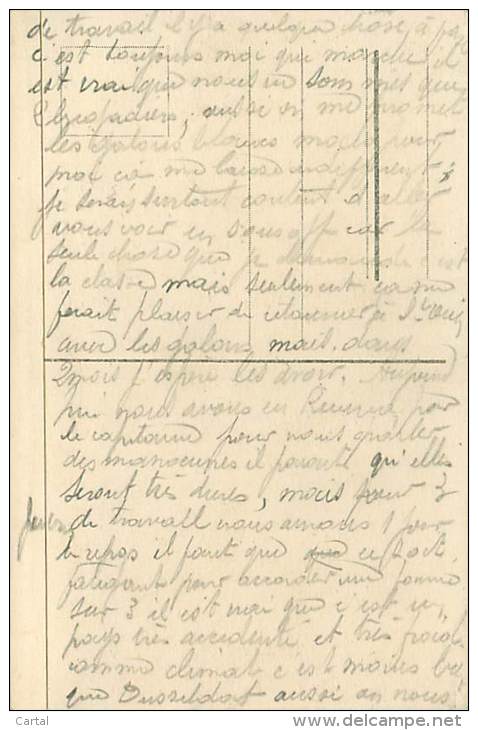 de travail il y a quelque chose, à pa
c'est toujours moi qui marche il
est vrai que nous ne sommes que
2 brigadiers, aussi on me promet
les galons blancs mais pour
moi ça me laisse indifférent
je serais surtout content d'aller
vous voir en s'ous off car la
seule chose que je demande c'est
la classe mais seulement ça me
ferait plaisir de retourner à St
avec les galons, mais dans
2 mois j'espère les avoir. Aujourd
hui nous avons eu Réunion par
le capitaine pour nous parler
des manœuvres il parait qu'elles
seront très dures, mais pour 3
jours de travail nous aurons 1 jour
de repos il faut que ce soit
fatigant pour accorder une
sur 3 il est vrai que c'est un
pays très accidenté et très froid
comme climat c'est moins
que Dusseldorf aussi on nous
Cartal
www.delcampe.net